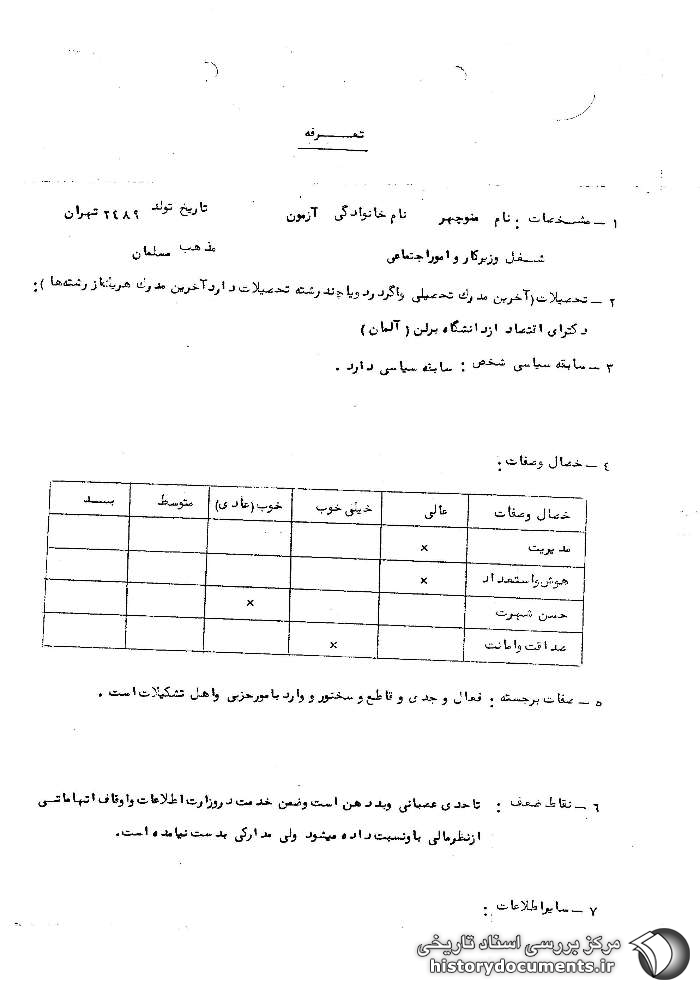 تعـــرفه
۱ – مشخصات : نام منوچهر نام خانوادگی آزمون تاریخ تولد ۲۴۸۹ تهران
شغل وزیرکار و اموراجتماعی مذهب مسلمان
۲ – تحصیلات (آخرین مدرك تحصیلی واگر در دویاچند رشته تحصیلات دارد آخرین مدرك هریك از رشته‌ها ) :
دکترای اقتصاد از دانشگاه برلن ( آلمان )
۳ – سابقه سیاسی شخص : سابقه سیاسی دارد .
٤ – خصال وصفات :
خصال وصفات عالی خیلی خوب خوب (عادی) متوسط بـــد
مدیریت ×
هوش واستعداد ×
حسن شهرت ×
صداقت وامانت ×
۵ – صفات برجسته : فعال و جدی و قاطع و سخنور و وارد بامورحزبی واهل تشکیلات است .
۶ – نقاط ضعف : تاحدی عصبانی وبددهن است وضمن خدمت دروزارت اطلاعات واوقاف اتهاماتی
ازنظرمالی باونسبت داده میشود ولی مدارکی بدست نیامده است.
۷ – سایراطلاعات :
مرکز بررسی اسناد تاریخی
historydocuments.ir